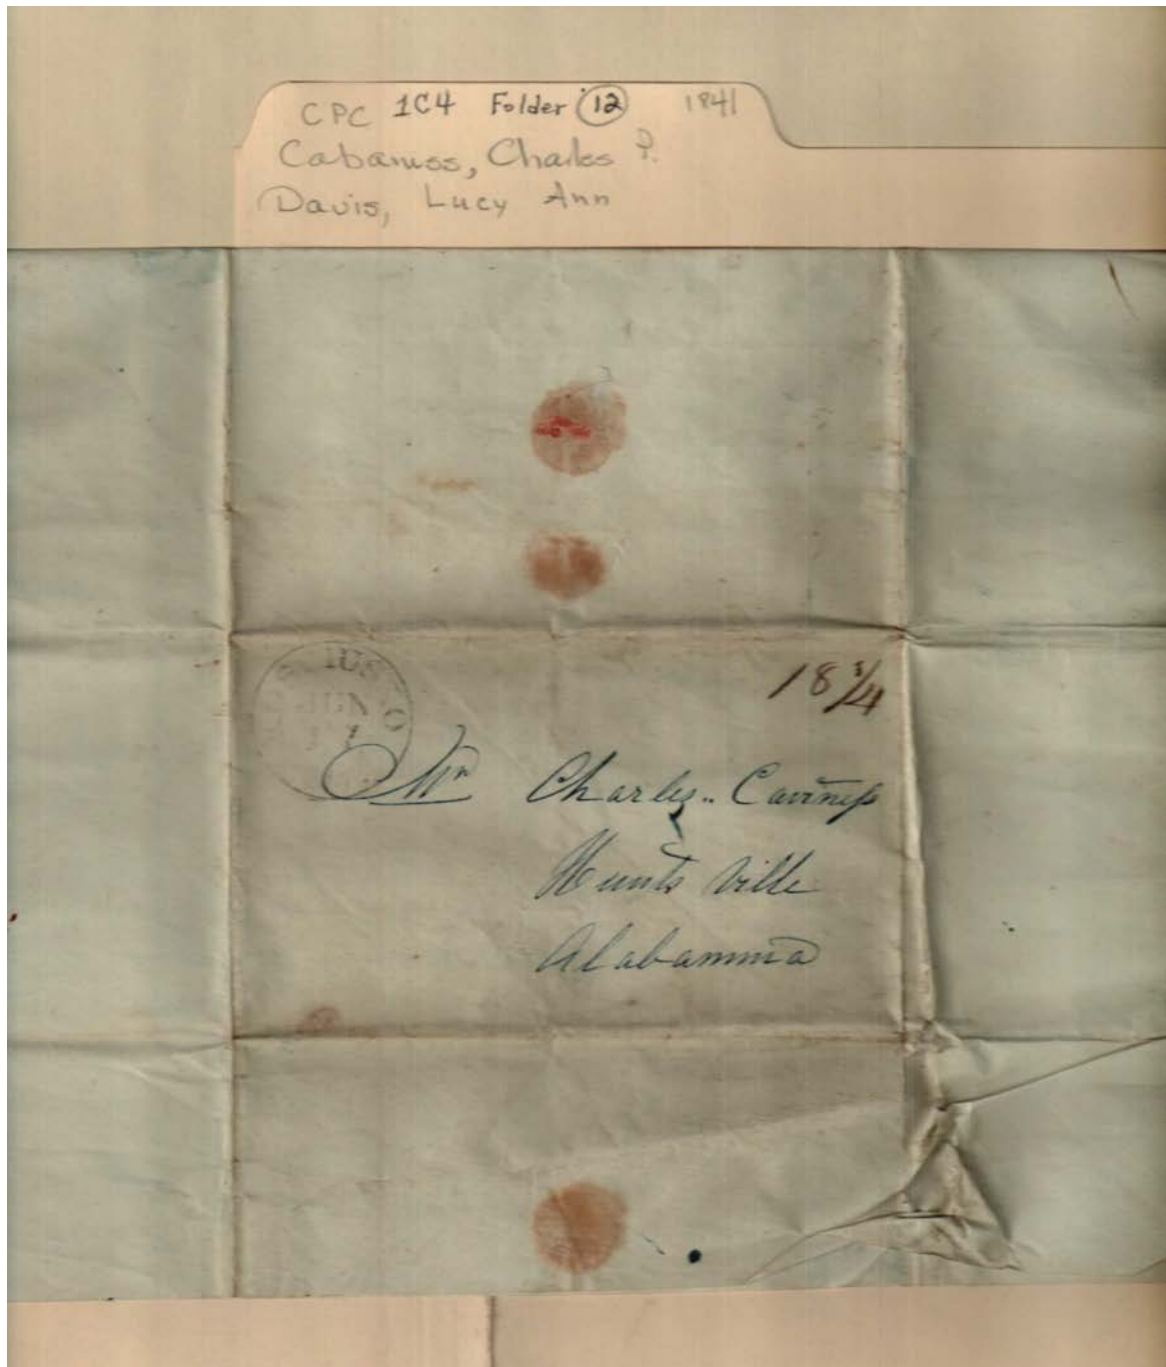 CPC 1C4 Folder 12 1841
Cabaniss, Charles P.
Davis, Lucy Ann
JUN
18 3/4
Mr Charles.. Caviness
Hunts ville
Alabamma